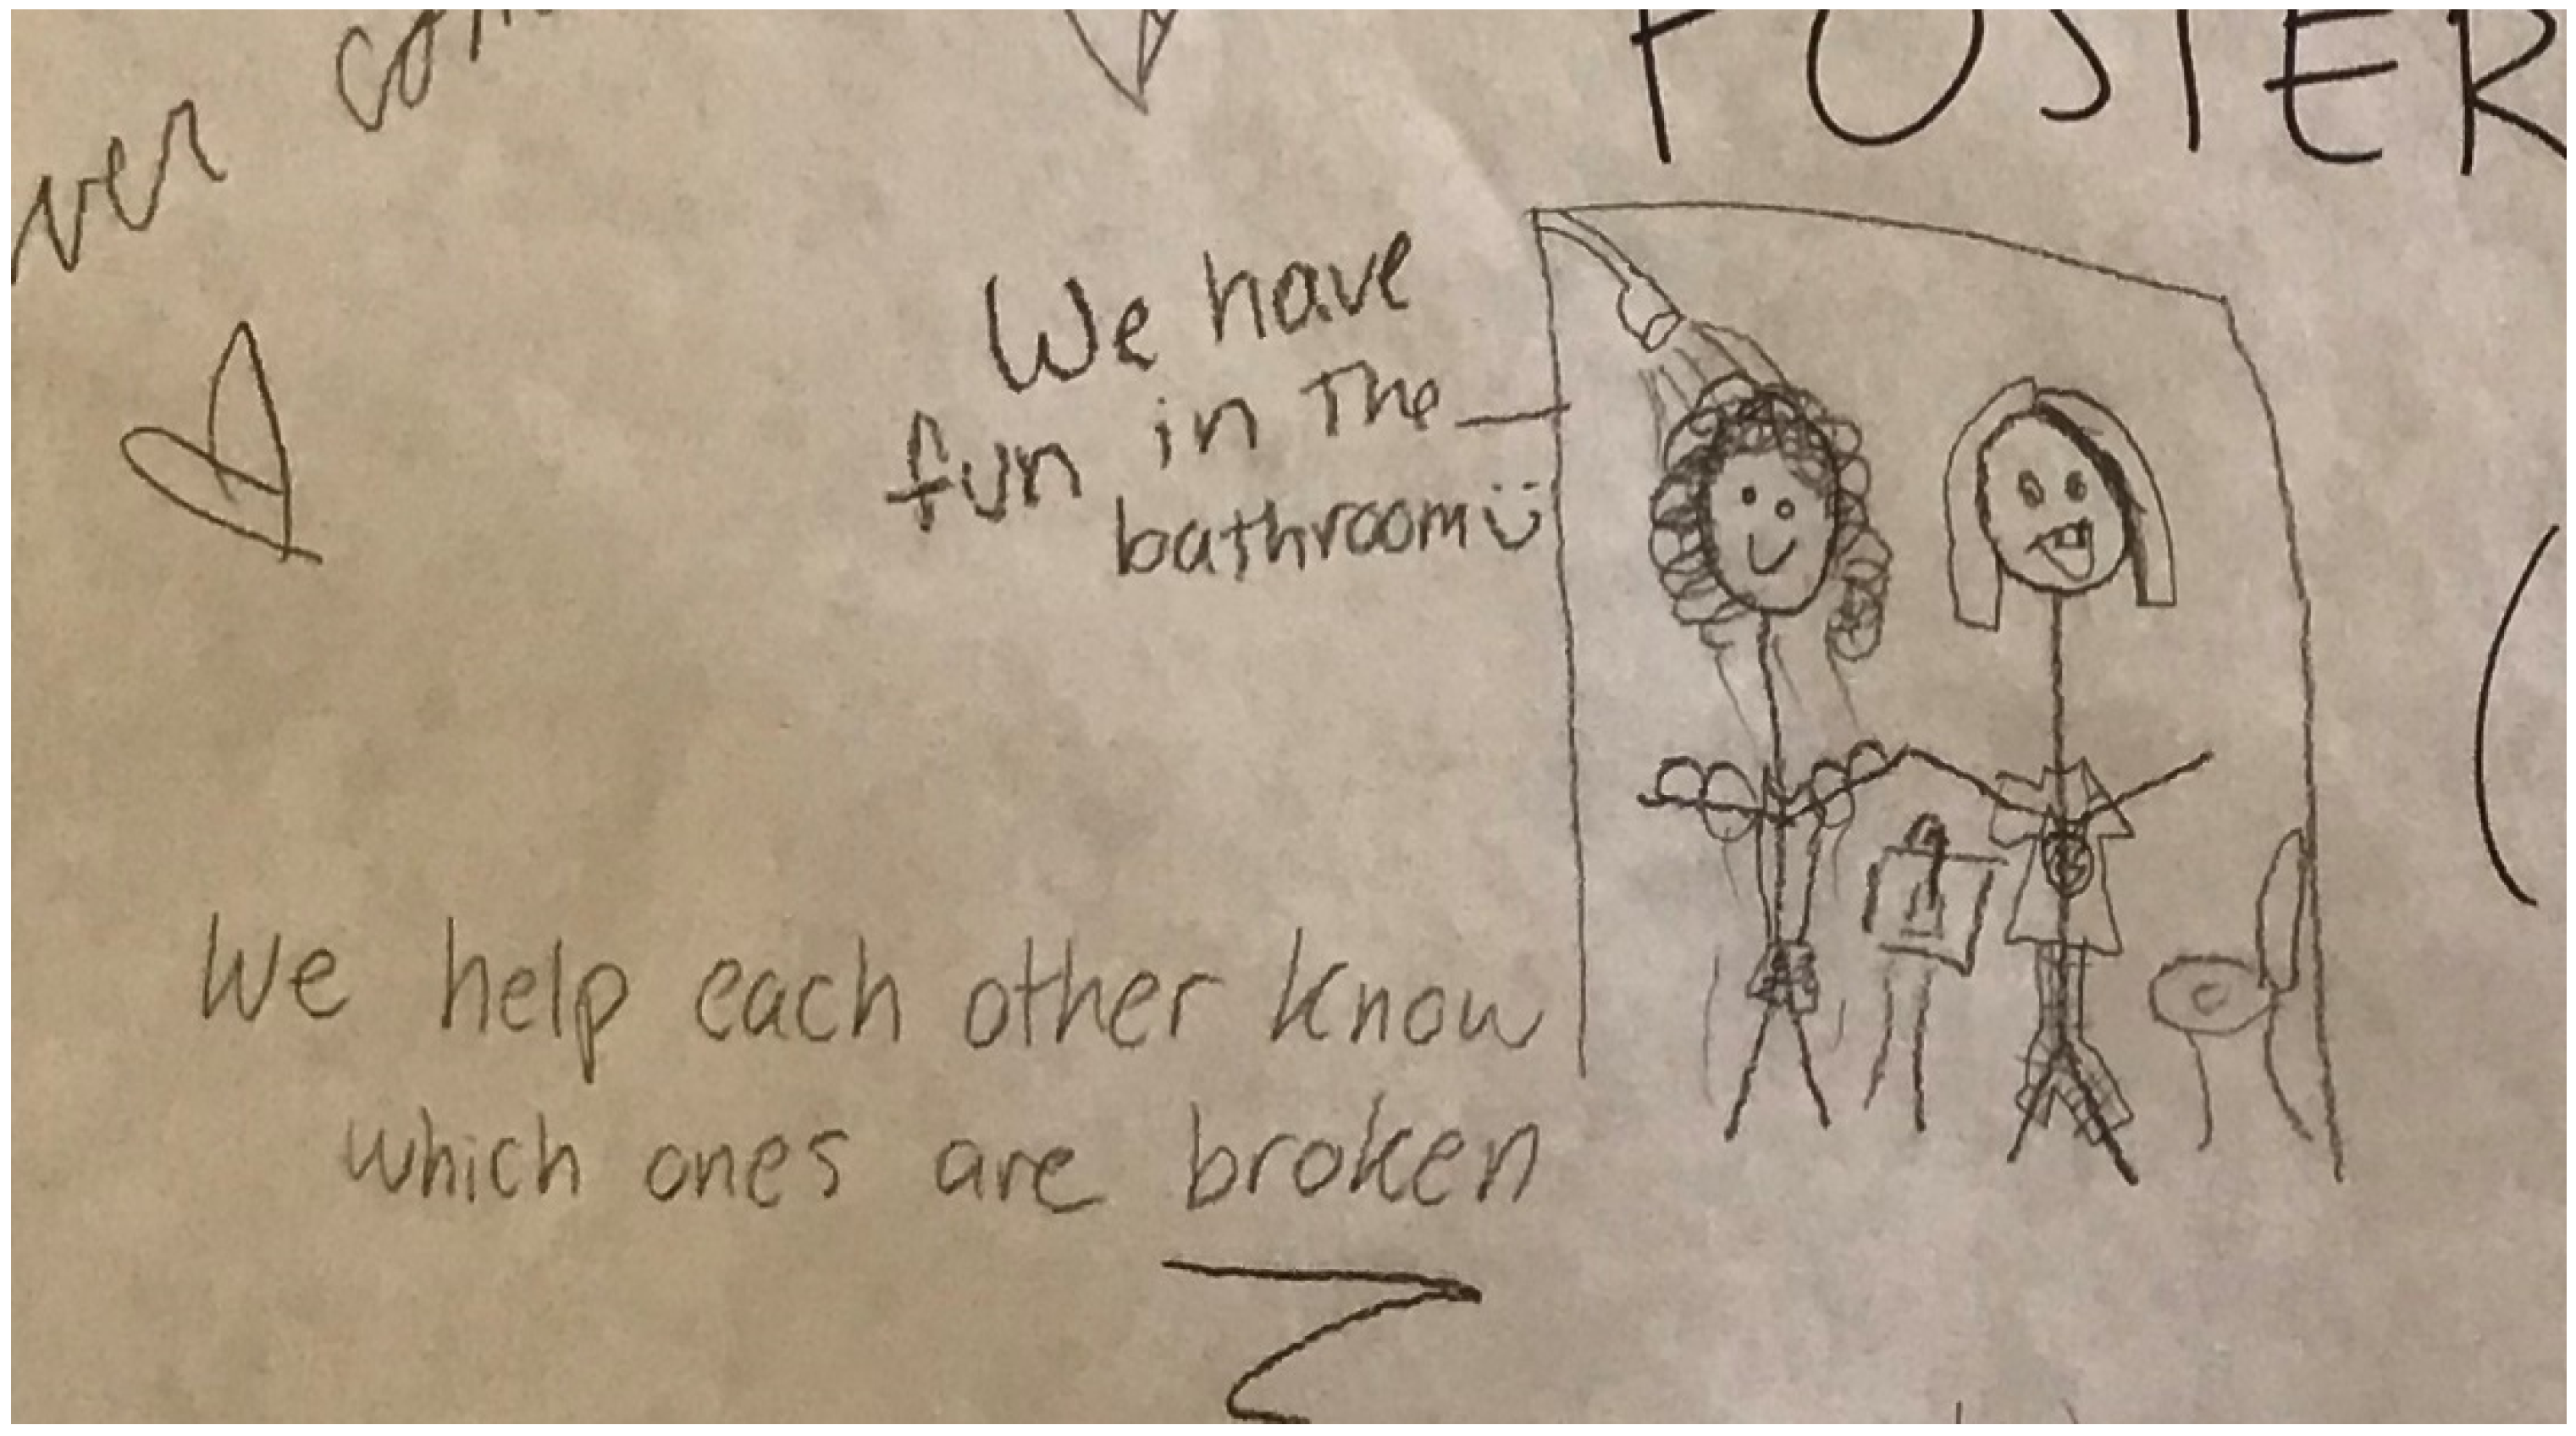 FOSTER
ver
We have
fun in The
bathroom
We help each other know
which ones are broken